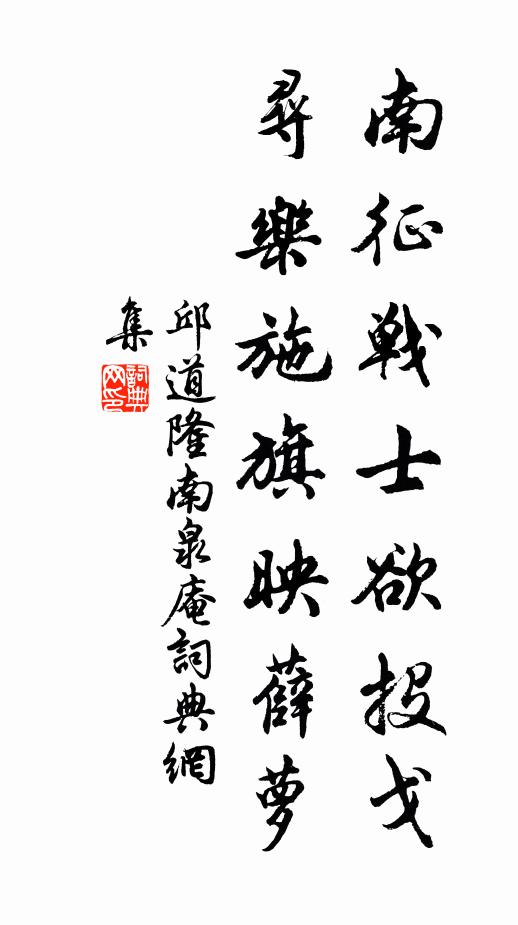 南征戦士欲投戈
尋樂施旗映薜萝
邱道隆南泉庵詞典網
集
詞典
网印